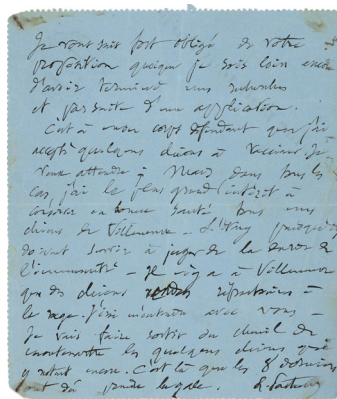 Je vous suis fort obligé de votre
proposition quoique je sois loin encore
d'avoir terminé mes
et par suite d'une application.
C'est à mon corps défendant que j'ai
accepté quelques chiens à vacciner. Je
vous attendre à Dans tous les
cas, j'ai le plus grand intérêt à
conserver en bonne santé tous mes
chiens de Villeneuve - L'Etang puisqu'ils
doivent servir à juger de la durée de
l'immunité - Il n'y a à Villeneuve
que des chiens réfractaires à
la rage. J'irai avec vous -
Je vais faire sortir du chenil de
les quelques chiens qui
y restent encore. C'est là que les 8 derniers
ont dû prendre la gale. L. Pasteur